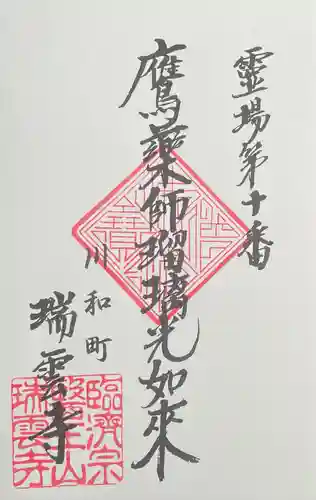 霊場第十番
鷹薬師瑠璃光如来
川和町
瑞雲寺
臨済宗
山
珠雲寺